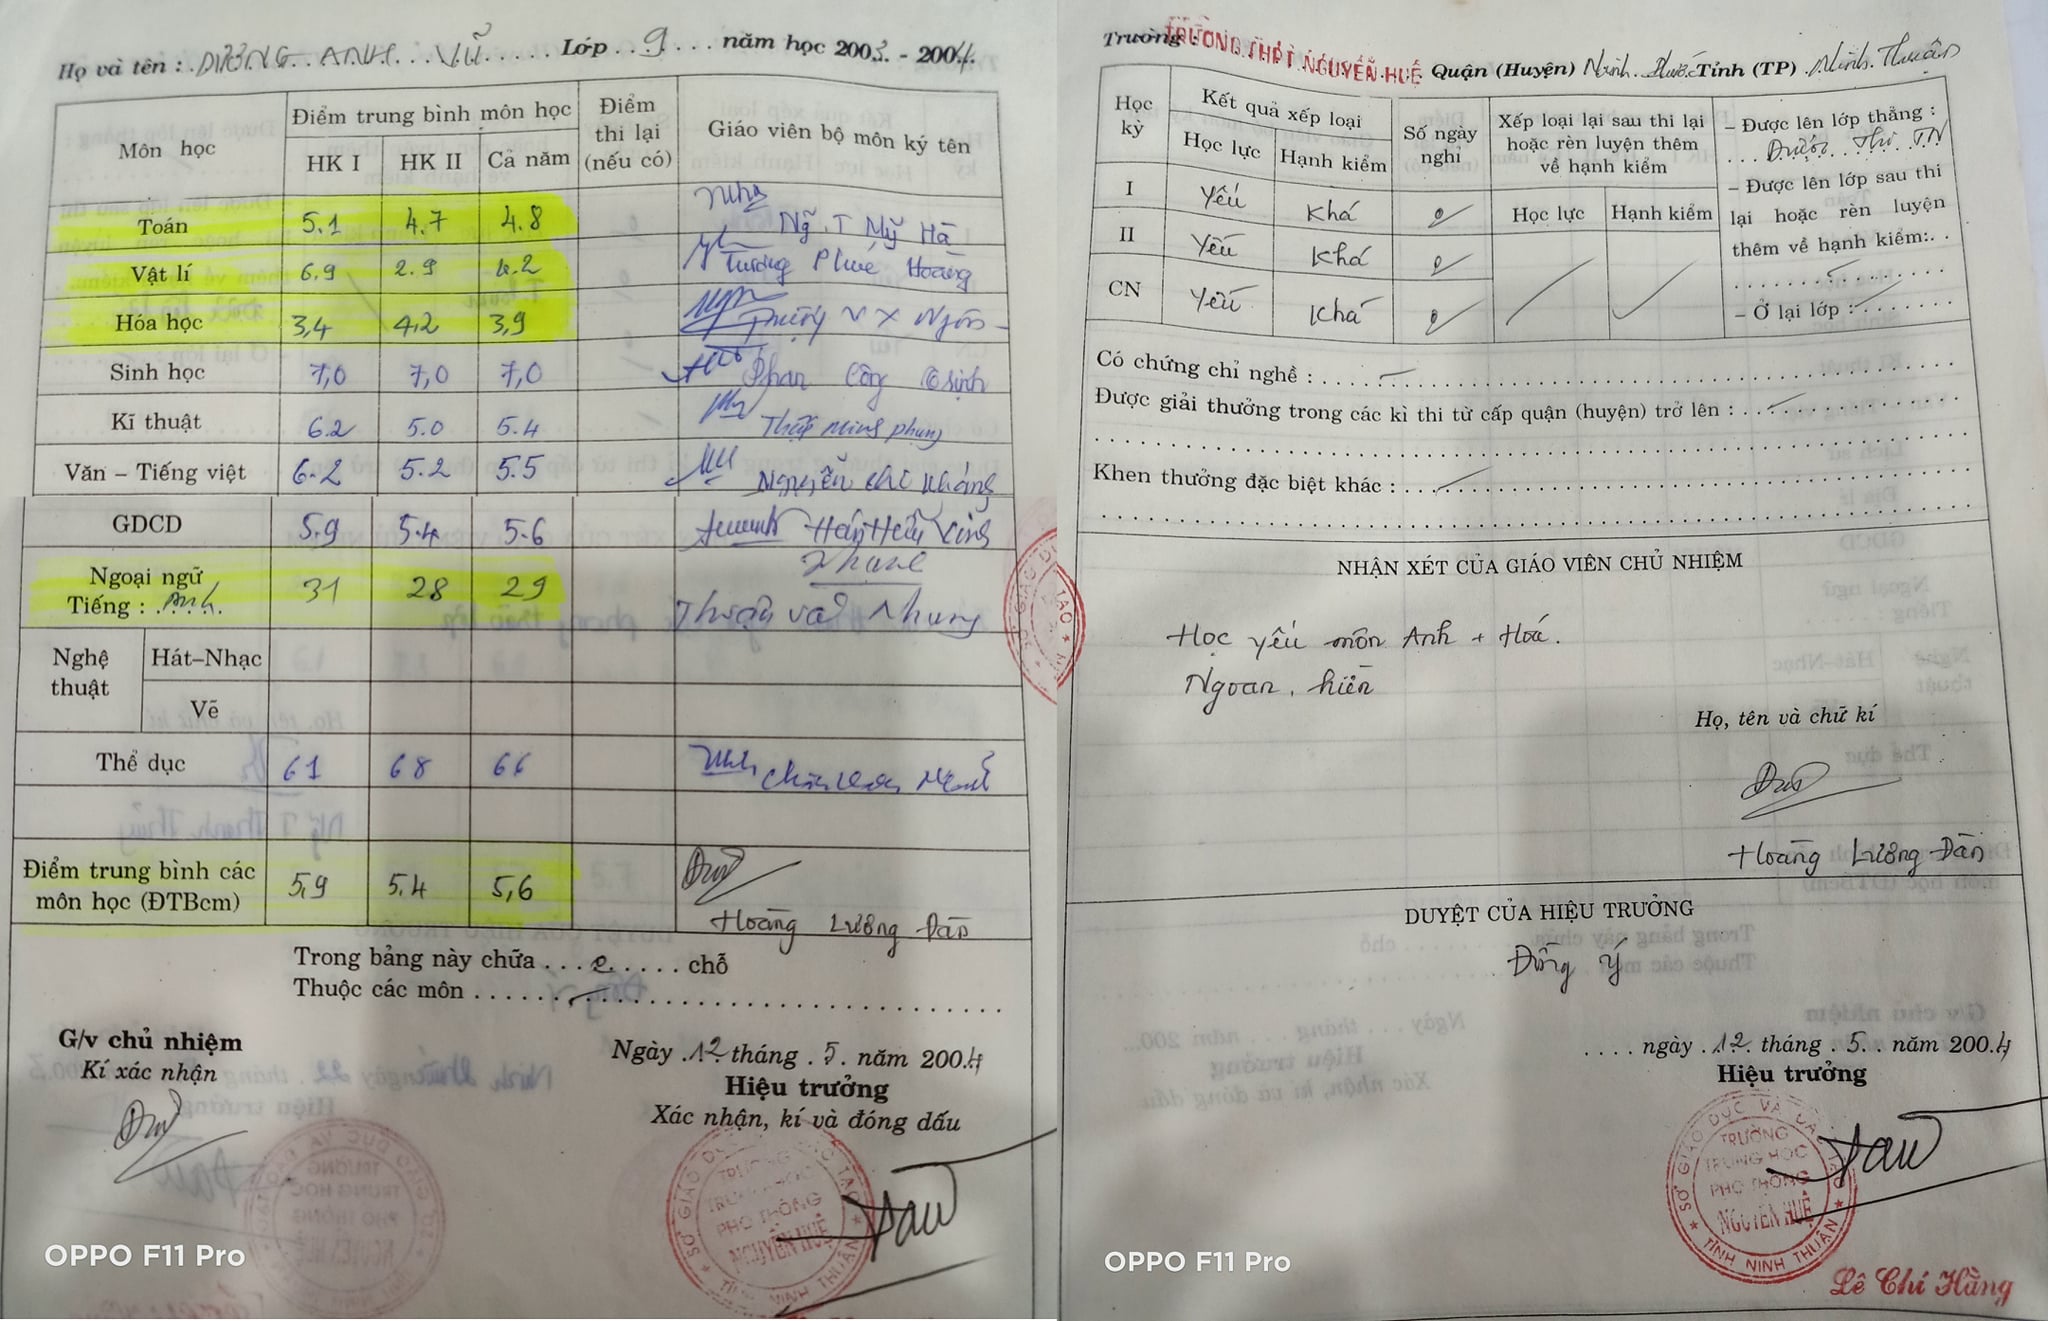 Họ và tên : DƯƠNG ANH VŨ Lớp 9 năm học 2003 - 2004
Môn học
Điểm trung bình môn học
HK I HK II Cả năm
Điểm thi lại (nếu có)
Giáo viên bộ môn ký tên
Toán 5.1 4.7 4.8 Ng T Mỹ Hà
Vật lí 6.9 2.9 4.2 Hoàng
Hóa học 3,4 4,2 3,9
Sinh học 7,0 7,0 7,0 Phan Công
Kĩ thuật 6.2 5.0 5.4
Văn – Tiếng việt 6.2 5.2 5.5 Nguyễn chí Kháng
GDCD 5.9 5.4 5.6
Ngoại ngữ
Tiếng : Anh 31 28 29 Nhung
Nghệ thuật
Hát–Nhạc
Vẽ
Thể dục 61 68 66
Điểm trung bình các
môn học (ĐTBcm) 5,9 5.4 5,6
Hoàng Lương Đàn
Trong bảng này chữa . . . 0 . . . . chỗ
Thuộc các môn . . . . . .
G/v chủ nhiệm
Kí xác nhận
Ngày 12 tháng 5 năm 2004
Hiệu trưởng
Xác nhận, kí và đóng dấu
SỞ GIÁO DỤC VÀ ĐÀO TẠO
TRƯỜNG
TRUNG HỌC
PHỔ THÔNG
NGUYỄN HUỆ
TỈNH NINH THUẬN
OPPO F11 Pro
Trường TRƯỜNG THPT NGUYỄN HUỆ Quận (Huyện) Ninh Phước Tỉnh (TP) Ninh Thuận
Học kỳ
Kết quả xếp loại
Học lực Hạnh kiểm
Số ngày nghỉ
Xếp loại lại sau thi lại
hoặc rèn luyện thêm
về hạnh kiểm
Học lực Hạnh kiểm
I Yếu Khá 0
II Yếu Khá 0
CN Yếu Khá 0
– Được lên lớp thẳng :
Được Thi TN
– Được lên lớp sau thi
lại hoặc rèn luyện
thêm về hạnh kiểm:. .
– Ở lại lớp :
Có chứng chỉ nghề :
Được giải thưởng trong các kì thi từ cấp quận (huyện) trở lên :
Khen thưởng đặc biệt khác :
NHẬN XÉT CỦA GIÁO VIÊN CHỦ NHIỆM
Học yếu môn Anh + Hoá.
Ngoan, hiền
Họ, tên và chữ kí
Hoàng Lương Đàn
DUYỆT CỦA HIỆU TRƯỞNG
Đồng ý
. . . . ngày 12 tháng 5 năm 2004
Hiệu trưởng
SỞ GIÁO DỤC VÀ ĐÀO TẠO
TRƯỜNG
TRUNG HỌC
PHỔ THÔNG
NGUYỄN HUỆ
TỈNH NINH THUẬN
Lê Chí Hằng
OPPO F11 Pro